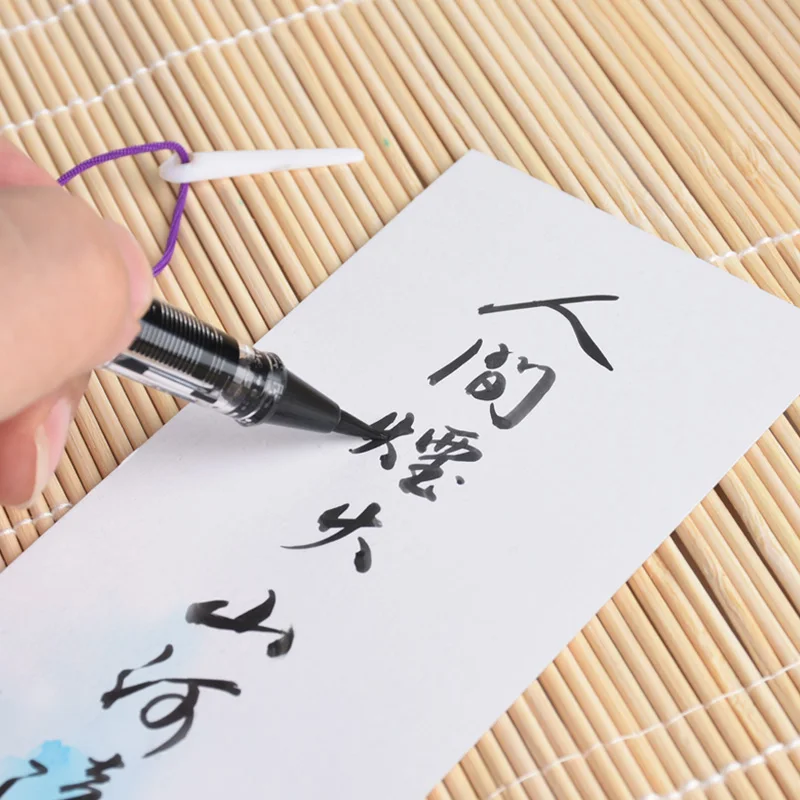 人間煙火山河